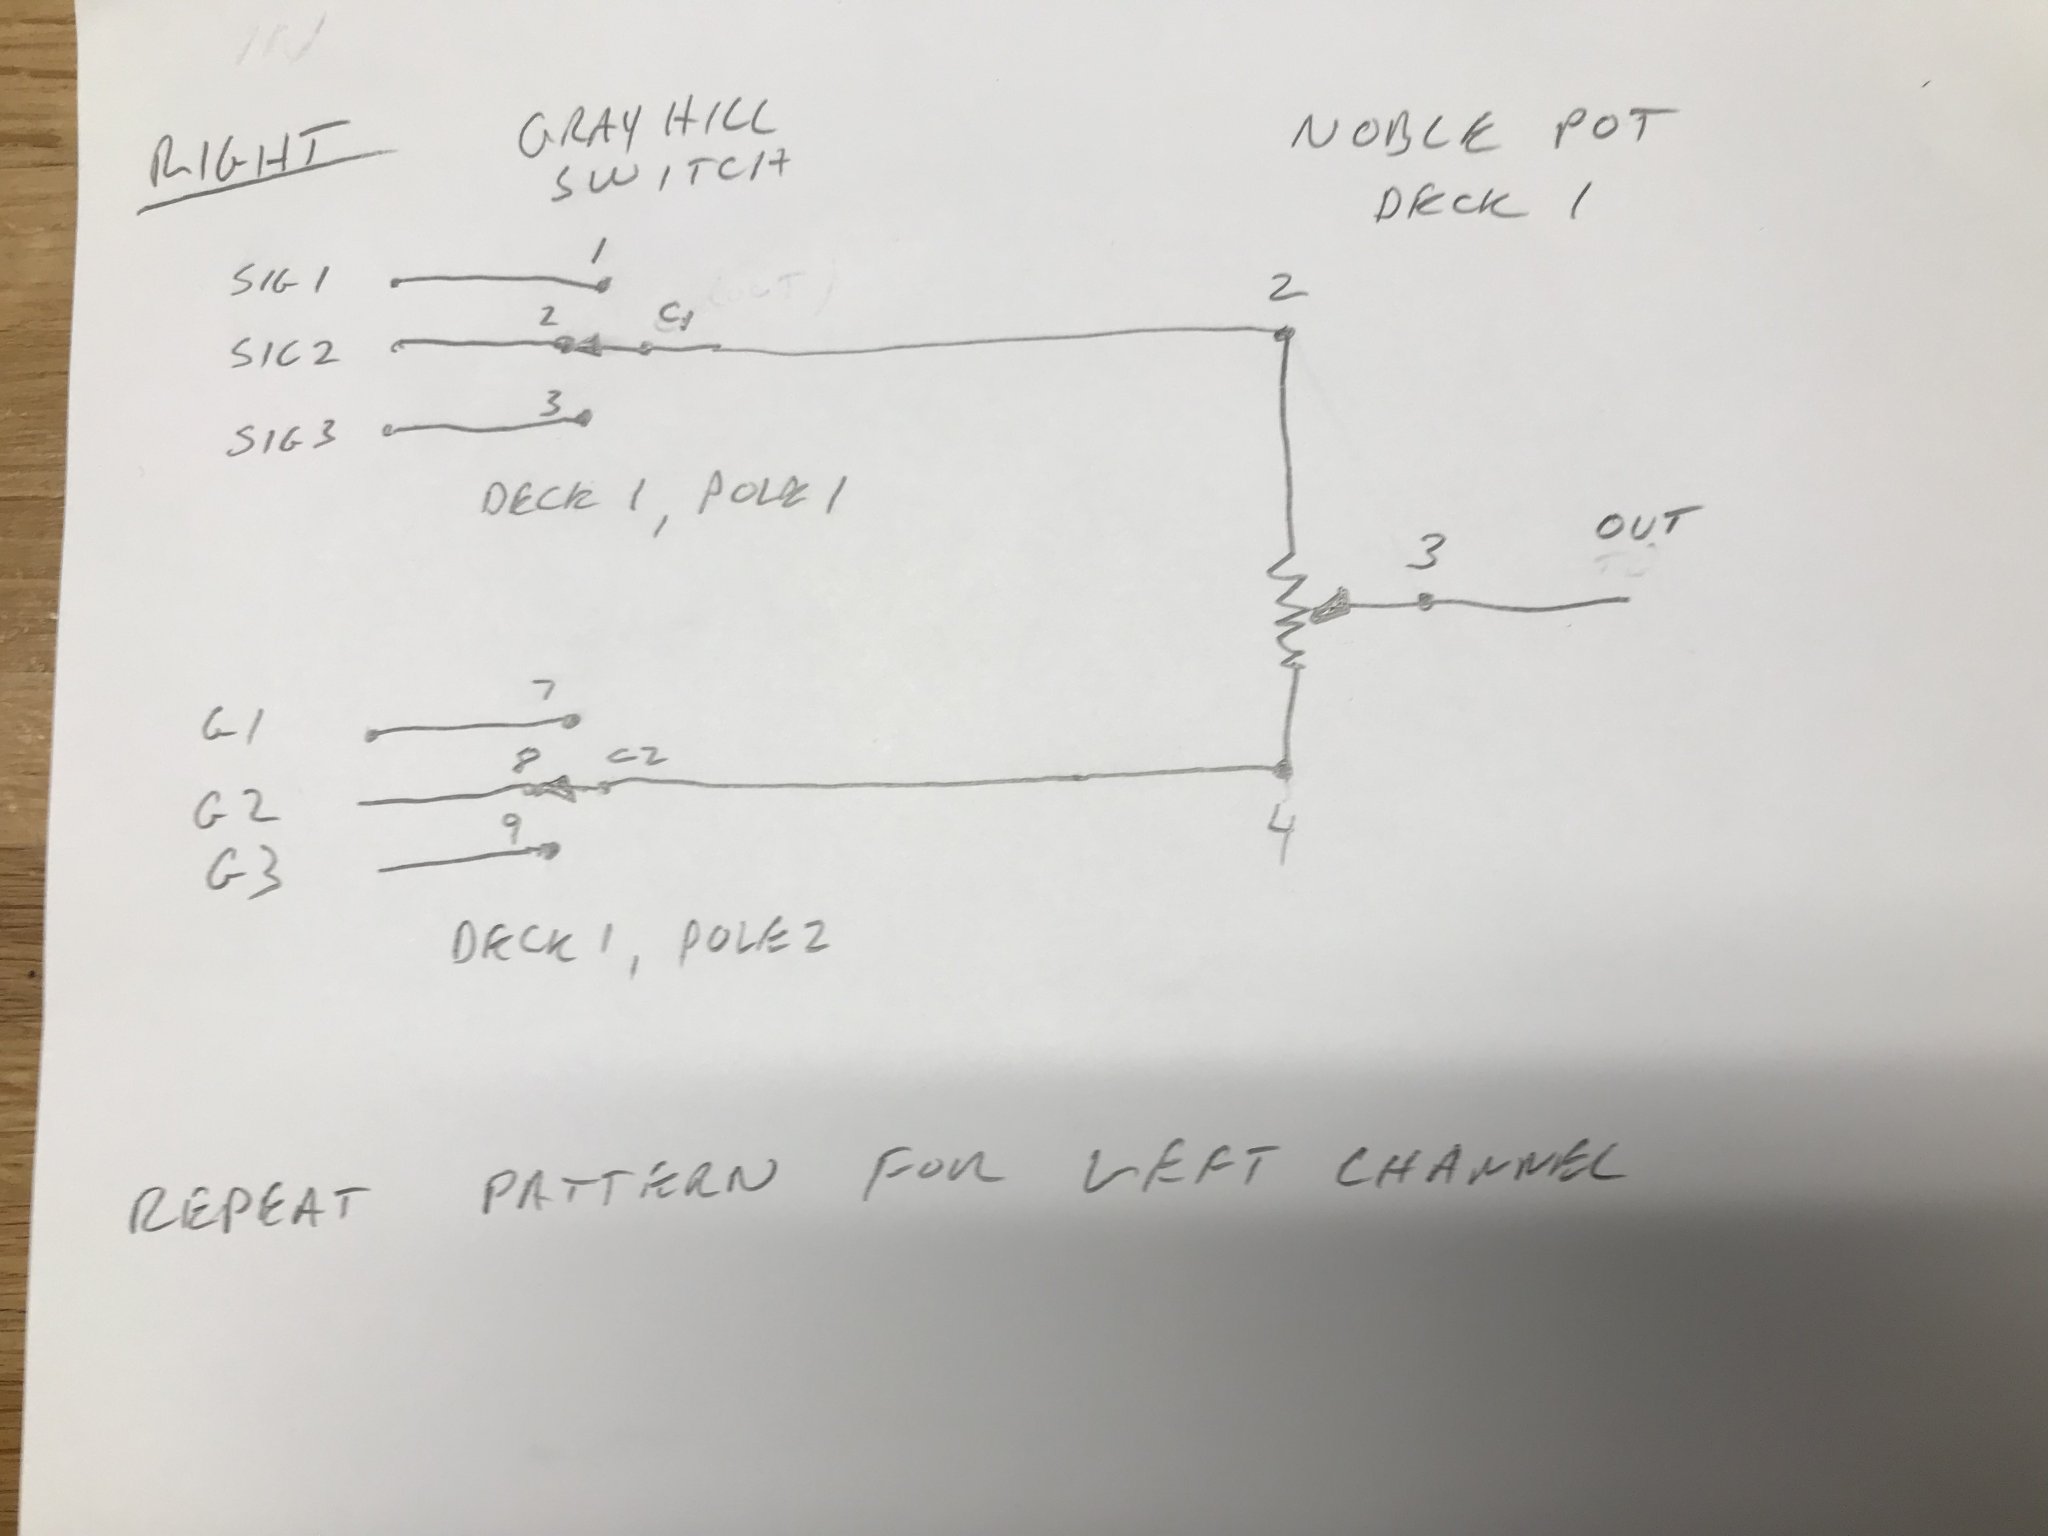 RIGHT
GRAYHILL
SWITCH
NOBLE POT
DECK 1
SIG1
1
SIG2
2
C1
SIG3
3
DECK 1, POLE 1
2
3
OUT
4
G1
7
G2
8
C2
G3
9
DECK 1, POLE 2
REPEAT PATTERN FOR LEFT CHANNEL